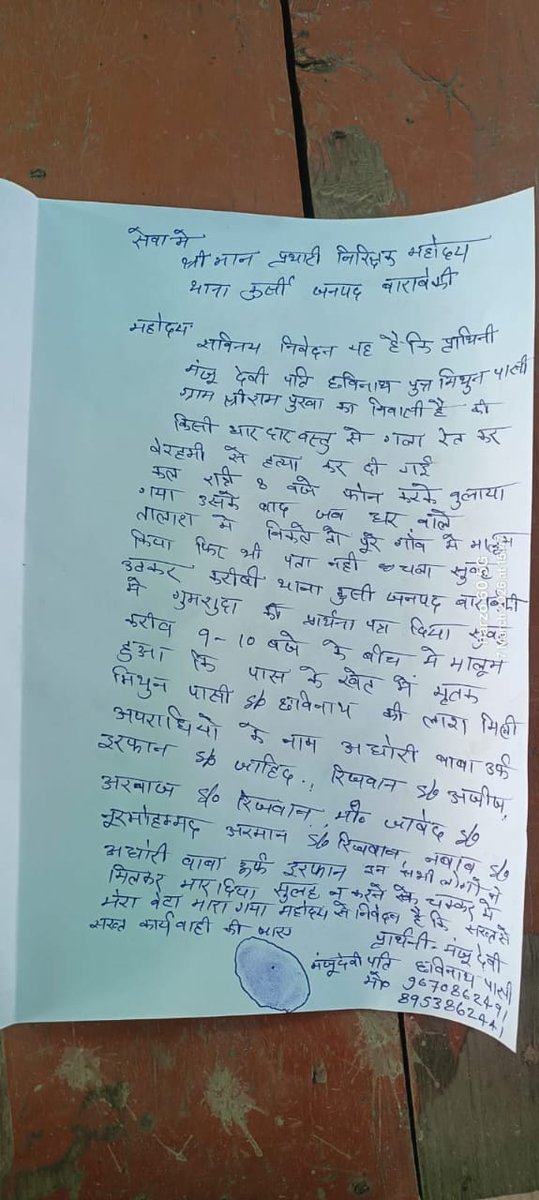 सेवा मे
श्री मान प्रभारी निरिक्षक महोदय
थाना कुर्सी जनपद बाराबंकी
महोदय
सविनय निवेदन यह है कि प्रार्थिनी
मंजू देवी पति छविनाथ पुत्र मिथुन पासी
ग्राम श्रीराम पुरवा का निवासी है की
किसी धार दार वस्तु से गला रेत कर
बेरहमी से हत्या कर दी गई
कल रात्रि 8 बजे फोन करके बुलाया
गया उसके बाद जब घर वाले
तालाश मे निकले तो पूरे गाँव मे मालूम
किया फिर भी पता नही चला सुबह
उठकर करीबी थाना कुर्सी जनपद बाराबंकी
मे गुमशुदा का प्रार्थना पत्र दिया सुबह
करीब 9-10 बजे के बीच मे मालूम
हुआ कि पास के खेत में मृतक
मिथुन पासी s/o छविनाथ की लाश मिली
अपराधियो के नाम अघोरी बाबा उर्फ
इरफान s/o जाहिद, रिजवान s/o अजीज,
अरबाज s/o रिजवान, मो० जावेद s/o
नूरमोहम्मद अरमान s/o रिजवान, नबाब s/o
अघोरी बाबा उर्फ इरफान इन सभी लोगो ने
मिलकर मार दिया सुलह न करने के चक्कर मे
मेरा बेटा मारा गया महोदय से निवेदन है कि सख्त से
सख्त कार्यवाही की जाए
प्रार्थिनी- मंजू देवी
मंजू देवी पति छविनाथ पासी
मो० 9670862491
8953862441